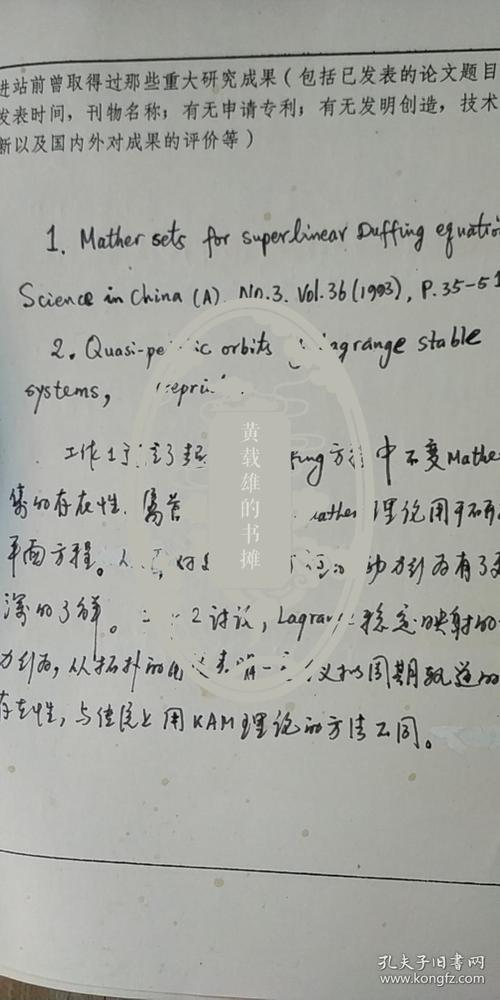 进站前曾取得过那些重大研究成果（包括已发表的论文题目
发表时间，刊物名称；有无申请专利；有无发明创造，技术
新以及国内外对成果的评价等）
1. Mather sets for superlinear Duffing equatio
Science in China (A). No.3. Vol.36 (1993), P.35-51
2. Quasi-pe ic orbits Lagrange stable
systems, epri
工作1 方程中不变Mathe
集的存在性. 属首 Mather理论用于研
平面方程。 动力行为有了更
深的了解。 2讨论, Lagran 稳定映射的
力行为, 从拓扑的 周期轨道的
存在性, 与传统上用KAM理论的方法不同。
黄载雄的书摊
孔夫子旧书网
www.kongfz.com